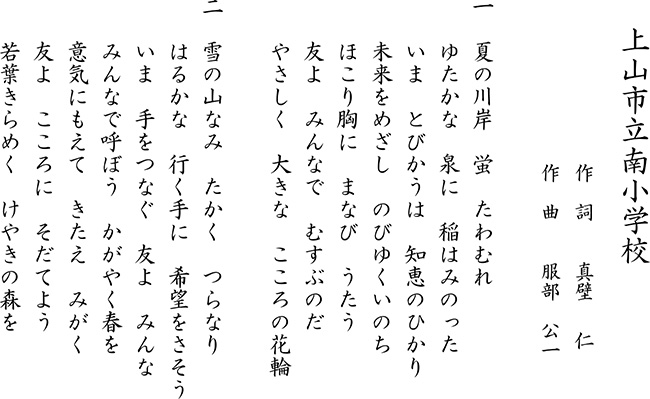 上山市立南小学校
作詞 真壁 仁
作曲 服部 公一
一 夏の川岸 蛍 たわむれ
ゆたかな 泉に 稲はみのった
いま とびかうは 知恵のひかり
未来をめざし のびゆくいのち
ほこり胸に まなび うたう
友よ みんなで むすぶのだ
やさしく 大きな こころの花輪
二 雪の山なみ たかく つらなり
はるかな 行く手に 希望をさそう
いま 手をつなぐ 友よ みんな
みんなで呼ぼう かがやく春を
意気にもえて きたえ みがく
友よ こころに そだてよう
若葉きらめく けやきの森を